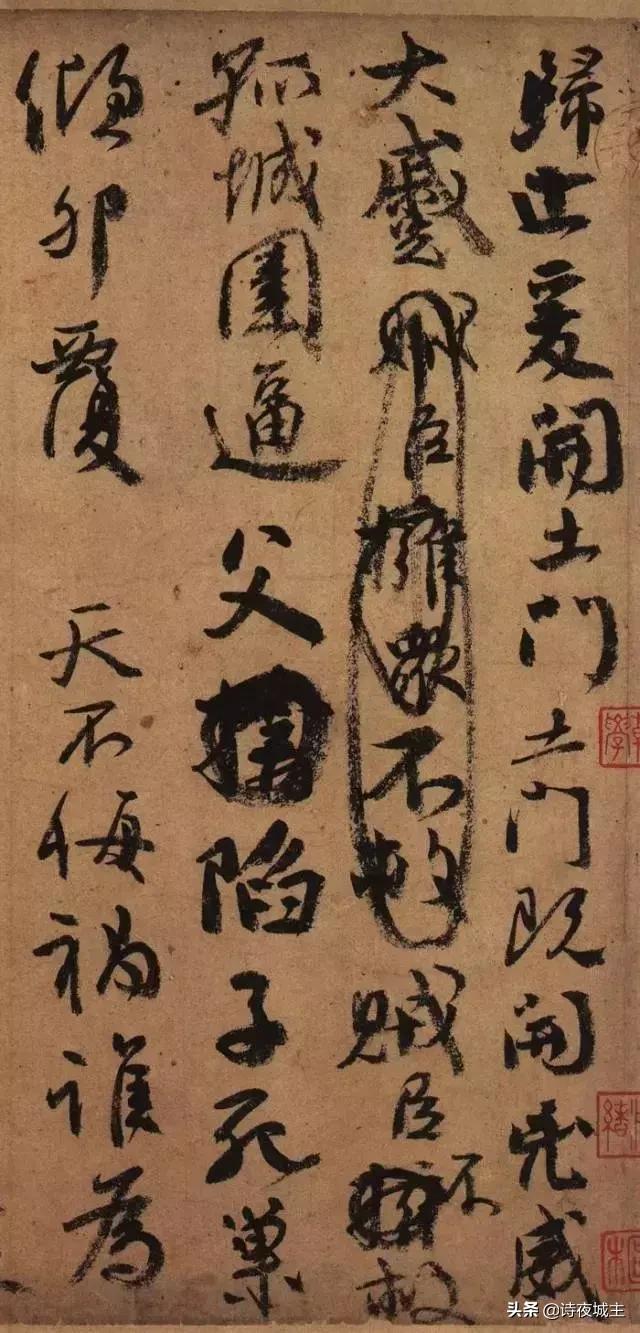 歸止爰開土門土門既開凶威
大蹙賊臣擁衆不救賊臣不救
孤城圍逼父陷子死巢
傾卵覆 天不悔禍誰為
头条 @诗夜城主